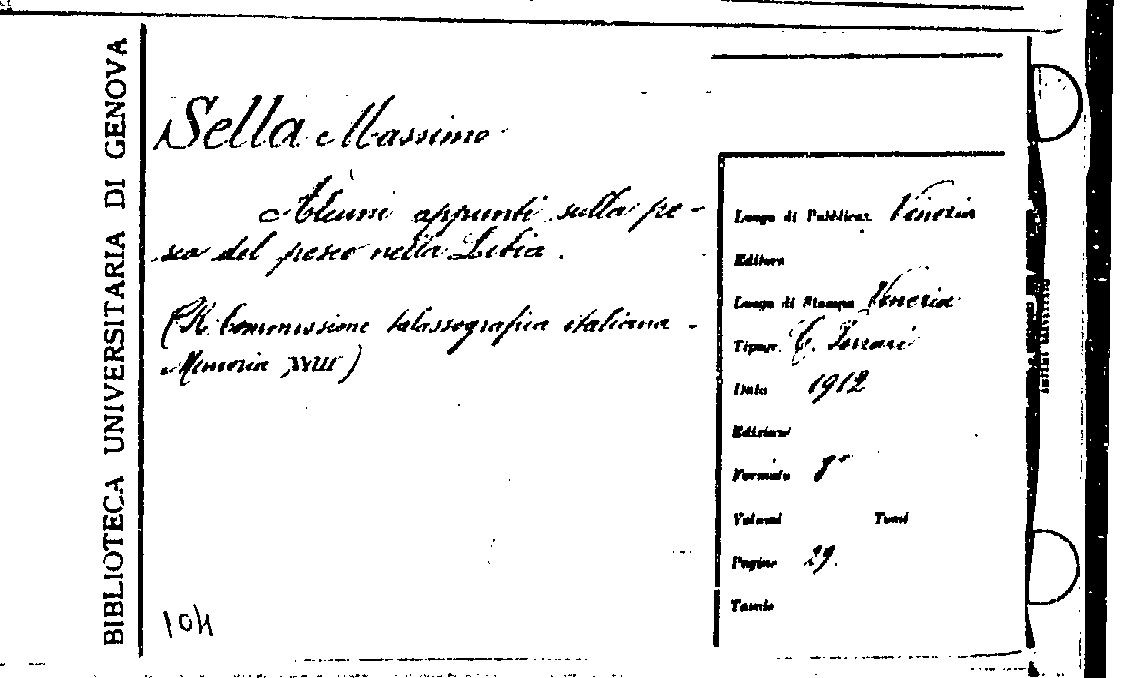 BIBLIOTECA UNIVERSITARIA DI GENOVA
Sella Massimo
Alcuni appunti sulla pe-
sca del pesce nella Libia.
(R. Commissione talassografica italiana -
Memoria XVIII)
104
Luogo di Pubblicaz. Venezia
Editore
Luogo di Stampa Venezia
Tipogr. C. Ferrari
Data 1912
Edizione
Formato 8°
Volumi Tomi
Pagine 29.
Tavole